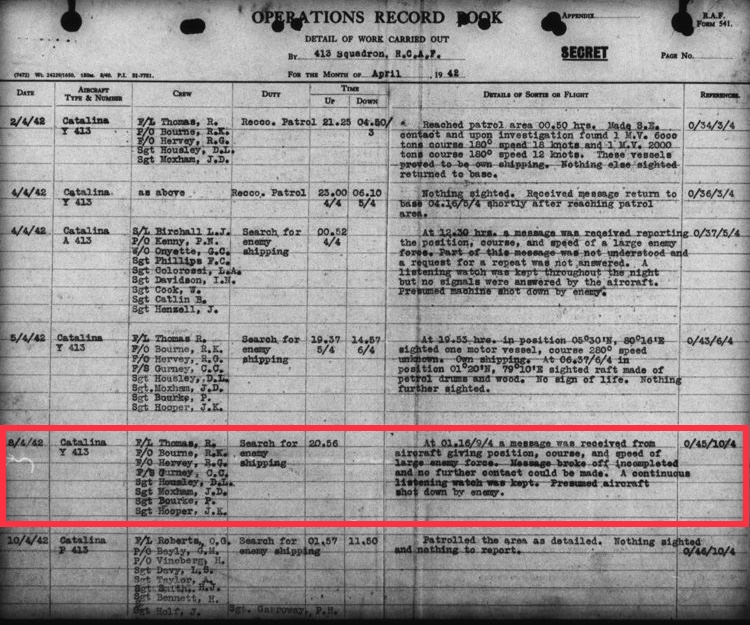 OPERATIONS RECORD BOOK
APPENDIX
R.A.F.
FORM 541.
DETAIL OF WORK CARRIED OUT
BY 413 Squadron, R.C.A.F.
SECRET
PAGE NO.
FOR THE MONTH OF April 1942
DATE AIRCRAFT TYPE & NUMBER CREW DUTY TIME UP DOWN DETAILS OF SORTIE OR FLIGHT REFERENCES
2/4/42 Catalina F/L Thomas, R. Recco. Patrol 21.25 04.50/ Reached patrol area 00.50 hrs. Made S.E. 0/34/3/4
Y 413 P/O Bourne, R.K. 3 contact and upon investigation found 1 M.V. 6000
F/O Hervey, R.G. tons course 180° speed 18 knots and 1 M.V. 2000
Sgt Housley, D.L. tons course 180° speed 12 knots. These vessels
Sgt Moxham, J.D. proved to be own shipping. Nothing else sighted
returned to base.
4/4/42 Catalina as above Recco. Patrol 23.00 06.10 Nothing sighted. Received message return to 0/36/3/4
Y 413 4/4 5/4 base 04.16/5/4 shortly after reaching patrol
area.
4/4/42 Catalina S/L Birchall L.J. Search for 00.52 At 12.30 hrs. a message was reqeived reporting 0/37/5/4
A 413 P/O Kenny, P.N. enemy 4/4 the position, course, and speed of a large enemy
W/O Onyette, G.C. shipping force. Part of this message was not understood and
Sgt Phillips F.C. a request for a repeat was not answered. A
Sgt Colorossi, L.A. listening watch was kept throughout the night
Sgt Davidson, I.N. but no signals were answered by the aircraft.
Sgt Cook, W. Presumed machine shot down by enemy.
Sgt Catlin B.
Sgt Henzell, J.
5/4/42 Catalina F/L Thomas R. Search for 19.37 14.57 At 19.53 hrs. in position 05°30'N, 80°16'E 0/43/6/4
Y 413 F/O Bourne, R.K. enemy 5/4 6/4 sighted one motor vessel, course 280° speed
F/O Hervey, R.G. shipping unknown. Own shipping. At 06.37/6/4 in
F/S Gurney, C.C. position 01°20'N, 79°10'E sighted raft made of
Sgt Housley, D.L. petrol drums and wood. No sign of life. Nothing
Sgt. Moxham, J.D. further sighted.
Sgt Bourke, P.
Sgt Hooper, J.K.
8/4/42 Catalina F/L Thomas, R. Search for 20.56 At 01.16/9/4 a message was received from 0/45/10/4
Y 413 F/O Bourne, R.K. enemy aircraft giving position, course, and speed of
F/O Hervey, R.G. shipping large enemy force. Message broke off incompleted
F/S Gurney, C.C. and no further contact could be made. A continuous
Sgt Housley, D.L. listening watch was kept. Presumed aircraft
Sgt Moxham, J.D. shot down by enemy.
Sgt Bourke, P.
Sgt Hooper, J.K.
10/4/42 Catalina F/L Roberts, O.G. Search for 01.57 11.50 Patrolled the area as detailed. Nothing sighted
P 413 P/O Bayly, G.M. enemy shipping and nothing to report. 0/46/10/4
P/O Vineberg, H.
Sgt Davy, L.S.
Sgt Taylor, A.
Sgt Smith, H.J.
Sgt Bennett, H.
Sgt Holf, J. Sgt. Garroway, P.H.